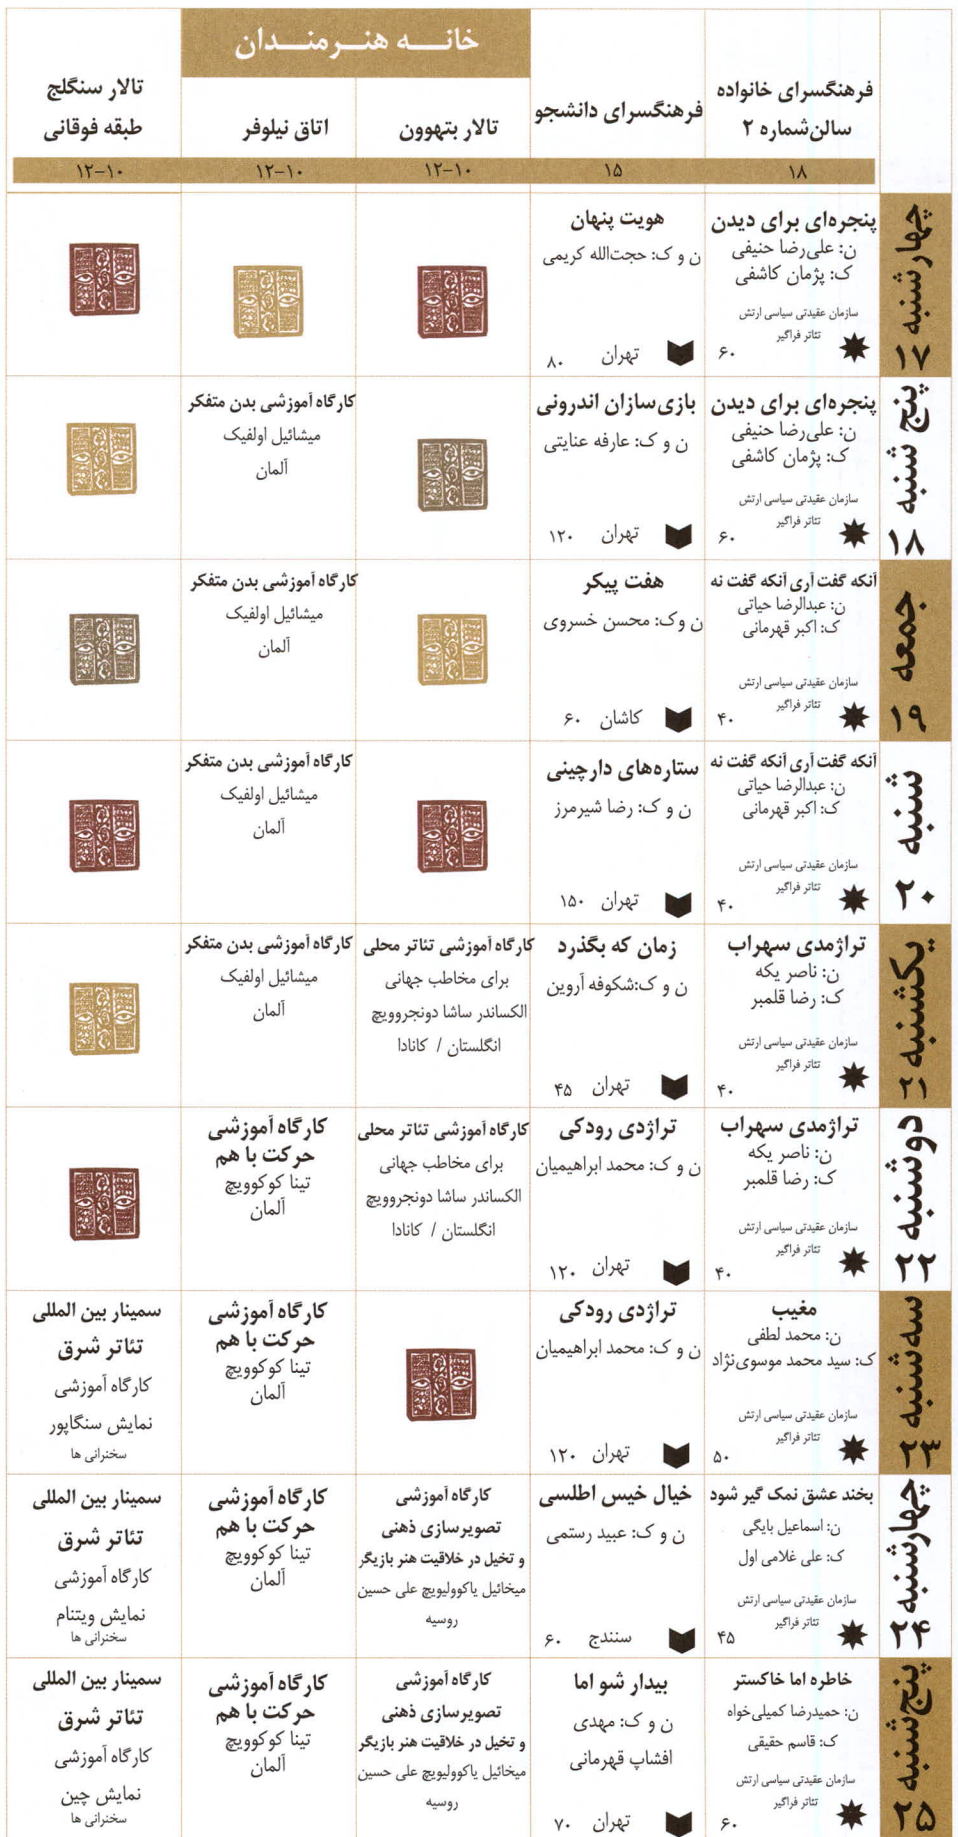 خانـه هنـرمنـدان
فرهنگسرای خانواده
سالن‌شماره ۲
فرهنگسرای دانشجو
تالار بتهوون
اتاق نیلوفر
تالار سنگلج
طبقه فوقانی
۱۸
۱۵
۱۲-۱۰
۱۲-۱۰
۱۲-۱۰
چهارشنبه ۱۷
پنجره‌ای برای دیدن
ن: علی‌رضا حنیفی
ک: پژمان کاشفی
سازمان عقیدتی سیاسی ارتش
تئاتر فراگیر
۶۰
هویت پنهان
ن و ک: حجت‌الله کریمی
تهران ۸۰
پنج شنبه ۱۸
پنجره‌ای برای دیدن
ن: علی‌رضا حنیفی
ک: پژمان کاشفی
سازمان عقیدتی سیاسی ارتش
تئاتر فراگیر
۶۰
بازی‌سازان اندرونی
ن و ک: عارفه عنایتی
تهران ۱۲۰
کارگاه آموزشی بدن متفکر
میشائیل اولفیک
آلمان
جمعه ۱۹
آنکه گفت آری آنکه گفت نه
ن: عبدالرضا حیاتی
ک: اکبر قهرمانی
سازمان عقیدتی سیاسی ارتش
تئاتر فراگیر
۴۰
هفت پیکر
ن وک: محسن خسروی
کاشان ۶۰
کارگاه آموزشی بدن متفکر
میشائیل اولفیک
آلمان
شنبه ۲۰
آنکه گفت آری آنکه گفت نه
ن: عبدالرضا حیاتی
ک: اکبر قهرمانی
سازمان عقیدتی سیاسی ارتش
تئاتر فراگیر
۴۰
ستاره‌های دارچینی
ن و ک: رضا شیرمرز
تهران ۱۵۰
کارگاه آموزشی بدن متفکر
میشائیل اولفیک
آلمان
یکشنبه ۲۱
تراژمدی سهراب
ن: ناصر یکه
ک: رضا قلمبر
سازمان عقیدتی سیاسی ارتش
تئاتر فراگیر
۴۰
زمان که بگذرد
ن و ک:شکوفه آروین
تهران ۴۵
کارگاه آموزشی تئاتر محلی
برای مخاطب جهانی
الکساندر ساشا دونجروویچ
انگلستان / کانادا
کارگاه آموزشی بدن متفکر
میشائیل اولفیک
آلمان
دوشنبه ۲۲
تراژمدی سهراب
ن: ناصر یکه
ک: رضا قلمبر
سازمان عقیدتی سیاسی ارتش
تئاتر فراگیر
۴۰
تراژدی رودکی
ن و ک: محمد ابراهیمیان
تهران ۱۲۰
کارگاه آموزشی تئاتر محلی
برای مخاطب جهانی
الکساندر ساشا دونجروویچ
انگلستان / کانادا
کارگاه آموزشی
حرکت با هم
تینا کوکوویچ
آلمان
سه‌شنبه ۲۳
مغیب
ن: محمد لطفی
ک: سید محمد موسوی‌نژاد
سازمان عقیدتی سیاسی ارتش
تئاتر فراگیر
۵۰
تراژدی رودکی
ن و ک: محمد ابراهیمیان
تهران ۱۲۰
کارگاه آموزشی
حرکت با هم
تینا کوکوویچ
آلمان
سمینار بین المللی
تئاتر شرق
کارگاه آموزشی
نمایش سنگاپور
سخنرانی ها
چهارشنبه ۲۴
بخند عشق نمک گیر شود
ن: اسماعیل بایگی
ک: علی غلامی اول
سازمان عقیدتی سیاسی ارتش
تئاتر فراگیر
۴۵
خیال خیس اطلسی
ن و ک: عبید رستمی
سنندج ۶۰
کارگاه آموزشی
تصویرسازی ذهنی
و تخیل در خلاقیت هنر بازیگر
میخائیل یاکوولیویچ علی حسین
روسیه
کارگاه آموزشی
حرکت با هم
تینا کوکوویچ
آلمان
سمینار بین المللی
تئاتر شرق
کارگاه آموزشی
نمایش ویتنام
سخنرانی ها
پنج‌شنبه ۲۵
خاطره اما خاکستر
ن: حمیدرضا کمیلی‌خواه
ک: قاسم حقیقی
سازمان عقیدتی سیاسی ارتش
تئاتر فراگیر
۶۰
بیدار شو اما
ن و ک: مهدی
افشاپ قهرمانی
تهران ۷۰
کارگاه آموزشی
تصویرسازی ذهنی
و تخیل در خلاقیت هنر بازیگر
میخائیل یاکوولیویچ علی حسین
روسیه
کارگاه آموزشی
حرکت با هم
تینا کوکوویچ
آلمان
سمینار بین المللی
تئاتر شرق
کارگاه آموزشی
نمایش چین
سخنرانی ها